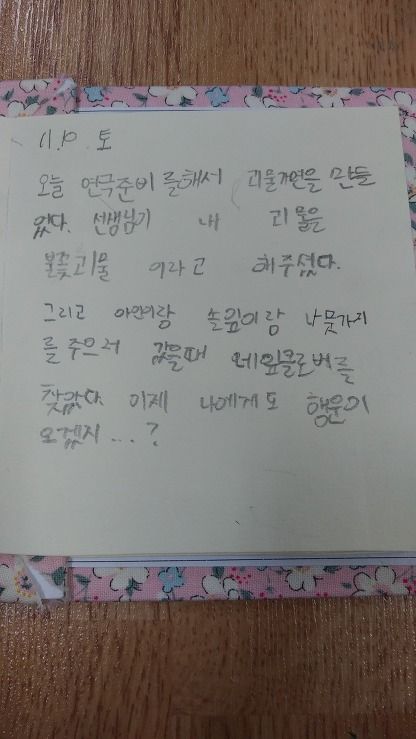 11.10. 토
오늘 연극준비를해서 괴물가면을 만들
었다. 선생님이 내 괴물을
불꽃괴물 이라고 해주셨다.
그리고 솔잎이랑 나뭇가지
를 주으러 갔을때 네잎클로버를
찾았다 이제 나에게도 행운이
오겠지 ...?